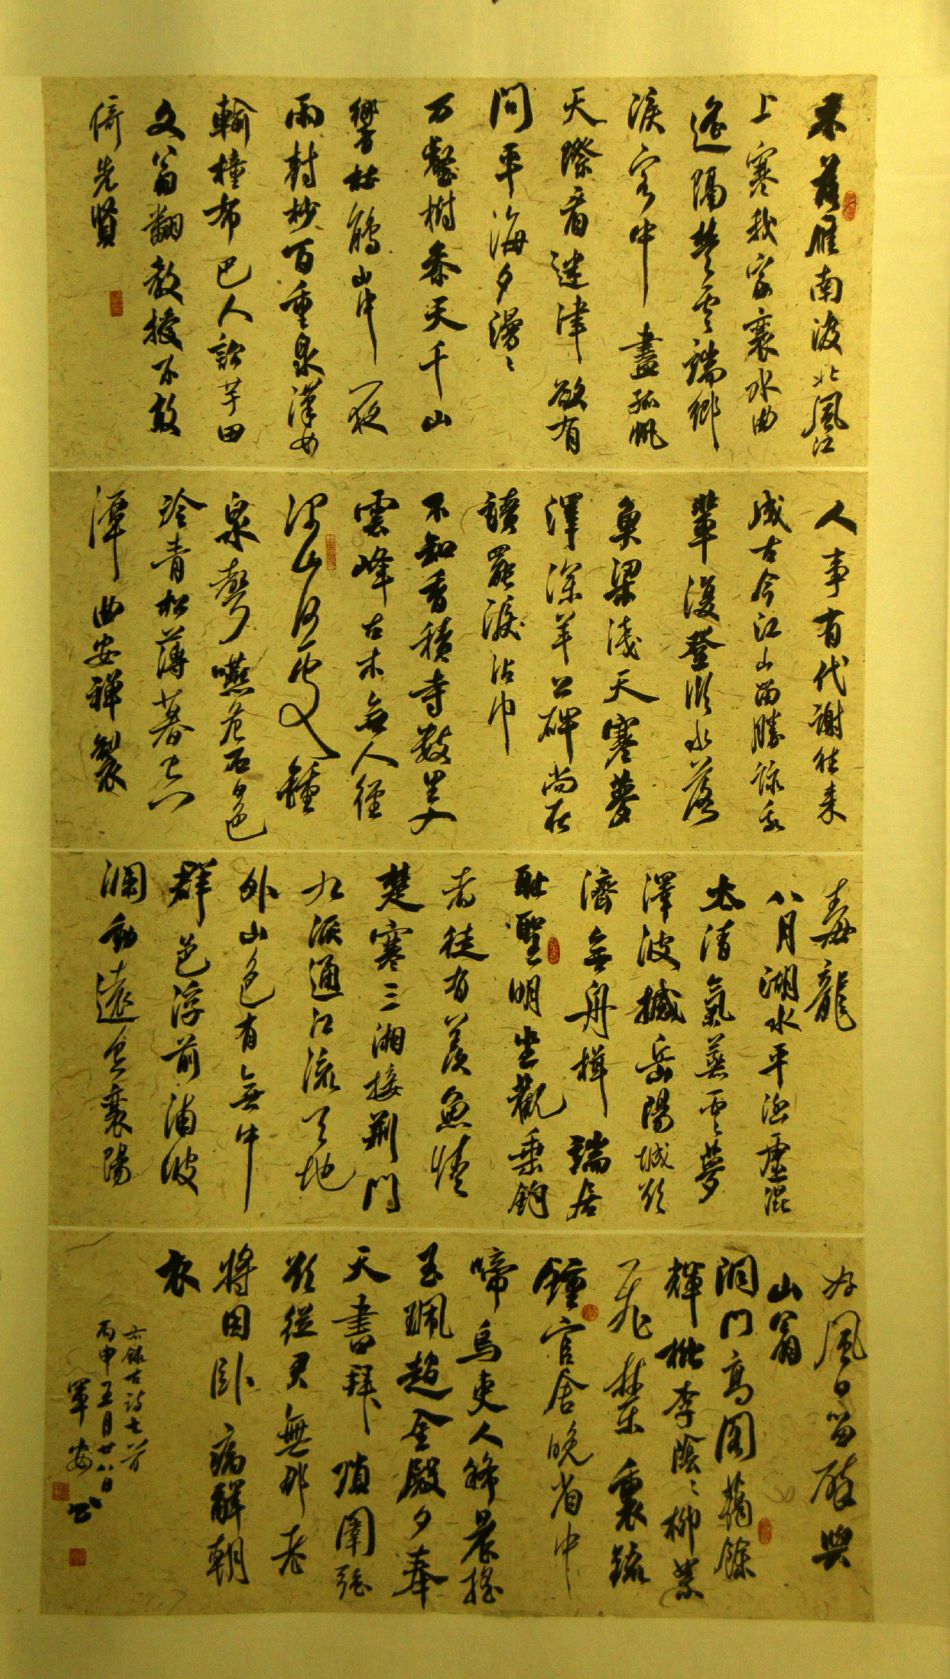 木落雁南渡北風江
上寒我家襄水曲
遙隔楚雲端鄉
淚客中盡孤帆
天際看迷津欲有
問平海夕漫〻
万壑樹參天千山
響杜鵑山中一夜
雨樹杪百重泉漢女
輸橦布巴人訟芋田
文翁翻教授不敢
倚先賢
人事有代謝往來
成古今江山留勝跡我
輩復登臨水落
魚梁淺天寒夢
澤深羊公碑尚在
讀罷淚沾巾
不知香積寺數里入
雲峰古木無人徑
深山何處鐘
泉聲咽危石日色
冷青松薄暮空
潭曲安禪製
毒龍
八月湖水平涵虛混
太清氣蒸雲夢
澤波撼岳陽城欲
濟無舟楫端居
恥聖明坐觀垂釣
者徒有羨魚情
楚塞三湘接荊門
九派通江流天地
外山色有無中
郡邑浮前浦波
瀾動遠空襄陽
好風日留醉與
山翁
洞門高閣靄餘
輝桃李陰〻柳絮
飛禁裏疏
鐘官舍晚省中
啼鳥吏人稀晨搖
玉珮趨金殿夕奉
天書拜瑣闈強
欲從君無那老
將因臥病解朝
衣
右錄古詩七首
丙申五月廿八日
軍安書